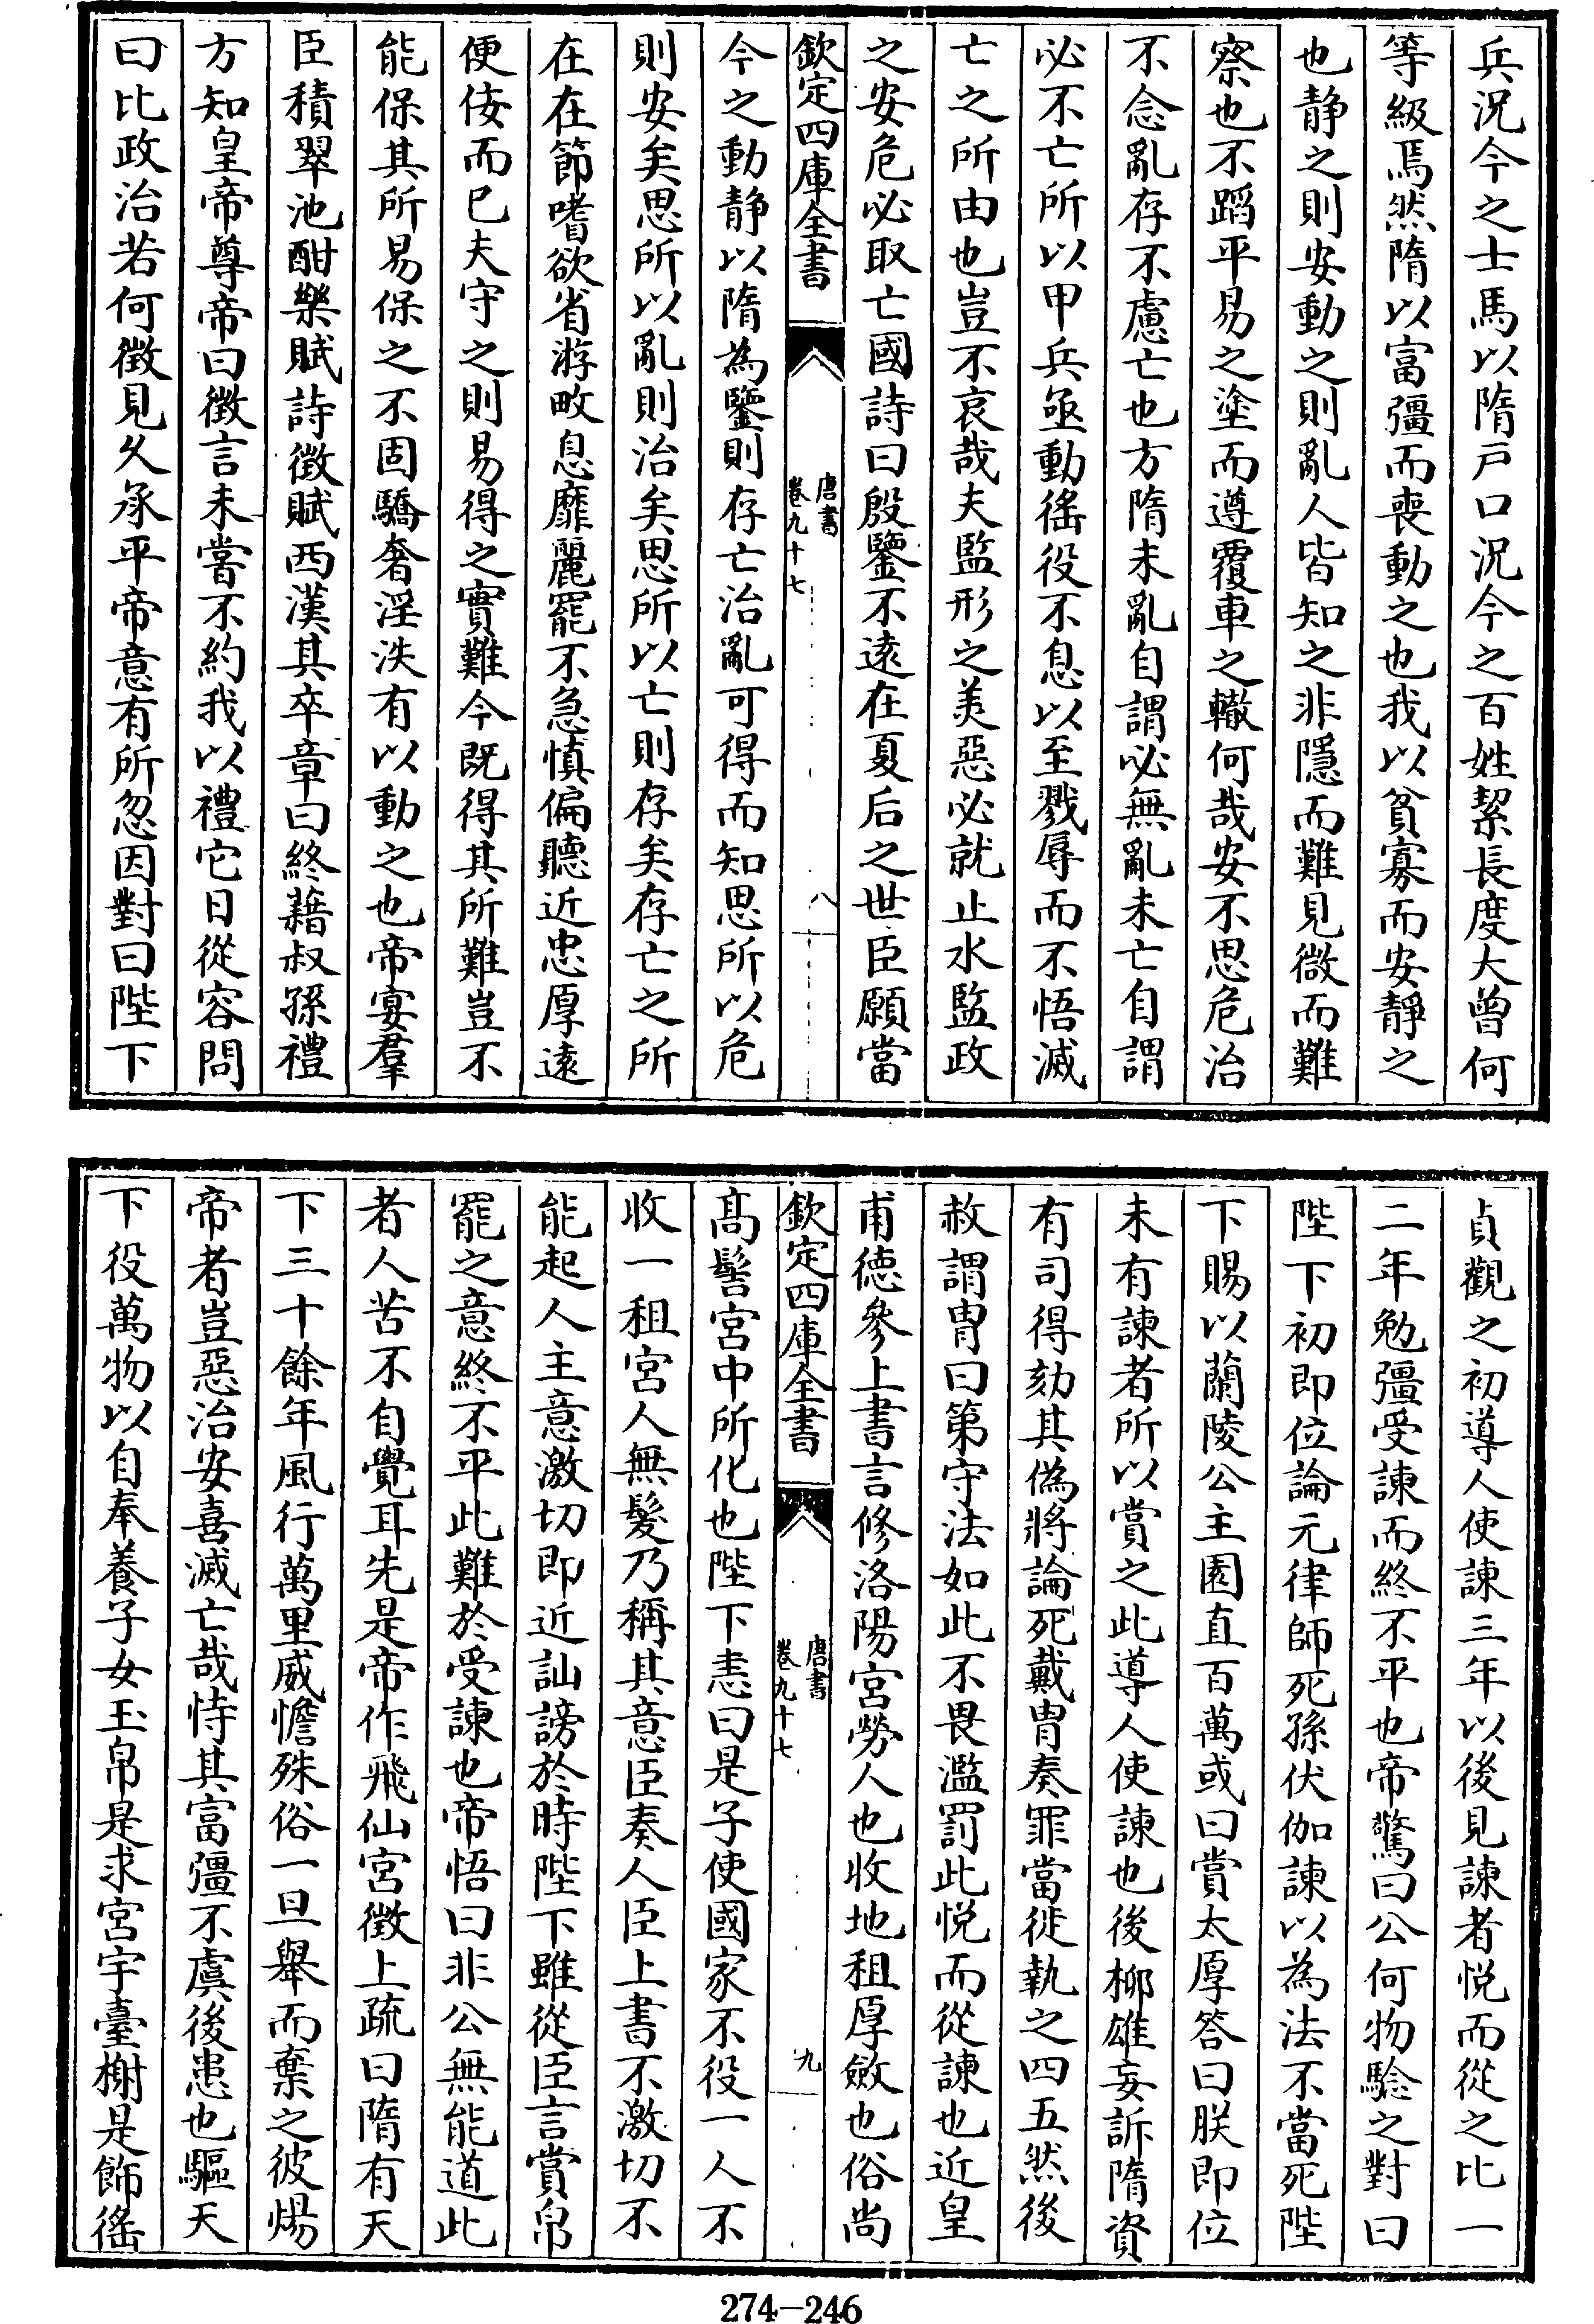 兵況今之士馬以隋戶口況今之百姓絜長度大曾何
等級焉然隋以富彊而喪動之也我以貧寡而安靜之
也靜之則安動之則亂人皆知之非隱而難見微而難
察也不蹈平易之塗而遵覆車之轍何哉安不思危治
不念亂存不慮亡也方隋未亂自謂必無亂未亡自謂
必不亡所以甲兵亟動徭役不息以至戮辱而不悟滅
亡之所由也豈不哀哉夫監形之美惡必就止水監政
之安危必取亡國詩曰殷鑒不遠在夏后之世臣願當
欽定四庫全書
唐書
卷九十七
八
今之動靜以隋為鑒則存亡治亂可得而知思所以危
則安矣思所以亂則治矣思所以亡則存矣存亡之所
在在節嗜欲省游畋息靡麗罷不急慎偏聽近忠厚遠
便佞而已夫守之則易得之實難今既得其所難豈不
能保其所易保之不固驕奢淫泆有以動之也帝宴羣
臣積翠池酣樂賦詩徵賦西漢其卒章曰終藉叔孫禮
方知皇帝尊帝曰徵言未嘗不約我以禮它日從容問
曰比政治若何徵見久承平帝意有所忽因對曰陛下
貞觀之初導人使諫三年以後見諫者悅而從之比一
二年勉彊受諫而終不平也帝驚曰公何物驗之對曰
陛下初即位論元律師死孫伏伽諫以為法不當死陛
下賜以蘭陵公主園直百萬或曰賞太厚答曰朕即位
未有諫者所以賞之此導人使諫也後柳雄妄訴隋資
有司得劾其偽將論死戴胄奏罪當徙執之四五然後
赦謂胄曰第守法如此不畏濫罰此悅而從諫也近皇
甫德參上書言修洛陽宮勞人也收地租厚斂也俗尚
欽定四庫全書
唐書
卷九十七
九
高髻宮中所化也陛下恚曰是子使國家不役一人不
收一租宮人無髮乃稱其意臣奏人臣上書不激切不
能起人主意激切即近訕謗於時陛下雖從臣言賞帛
罷之意終不平此難於受諫也帝悟曰非公無能道此
者人苦不自覺耳先是帝作飛仙宮徵上疏曰隋有天
下三十餘年風行萬里威憺殊俗一旦舉而棄之彼煬
帝者豈惡治安喜滅亡哉恃其富彊不虞後患也驅天
下役萬物以自奉養子女玉帛是求宮宇臺榭是飾徭
274-246